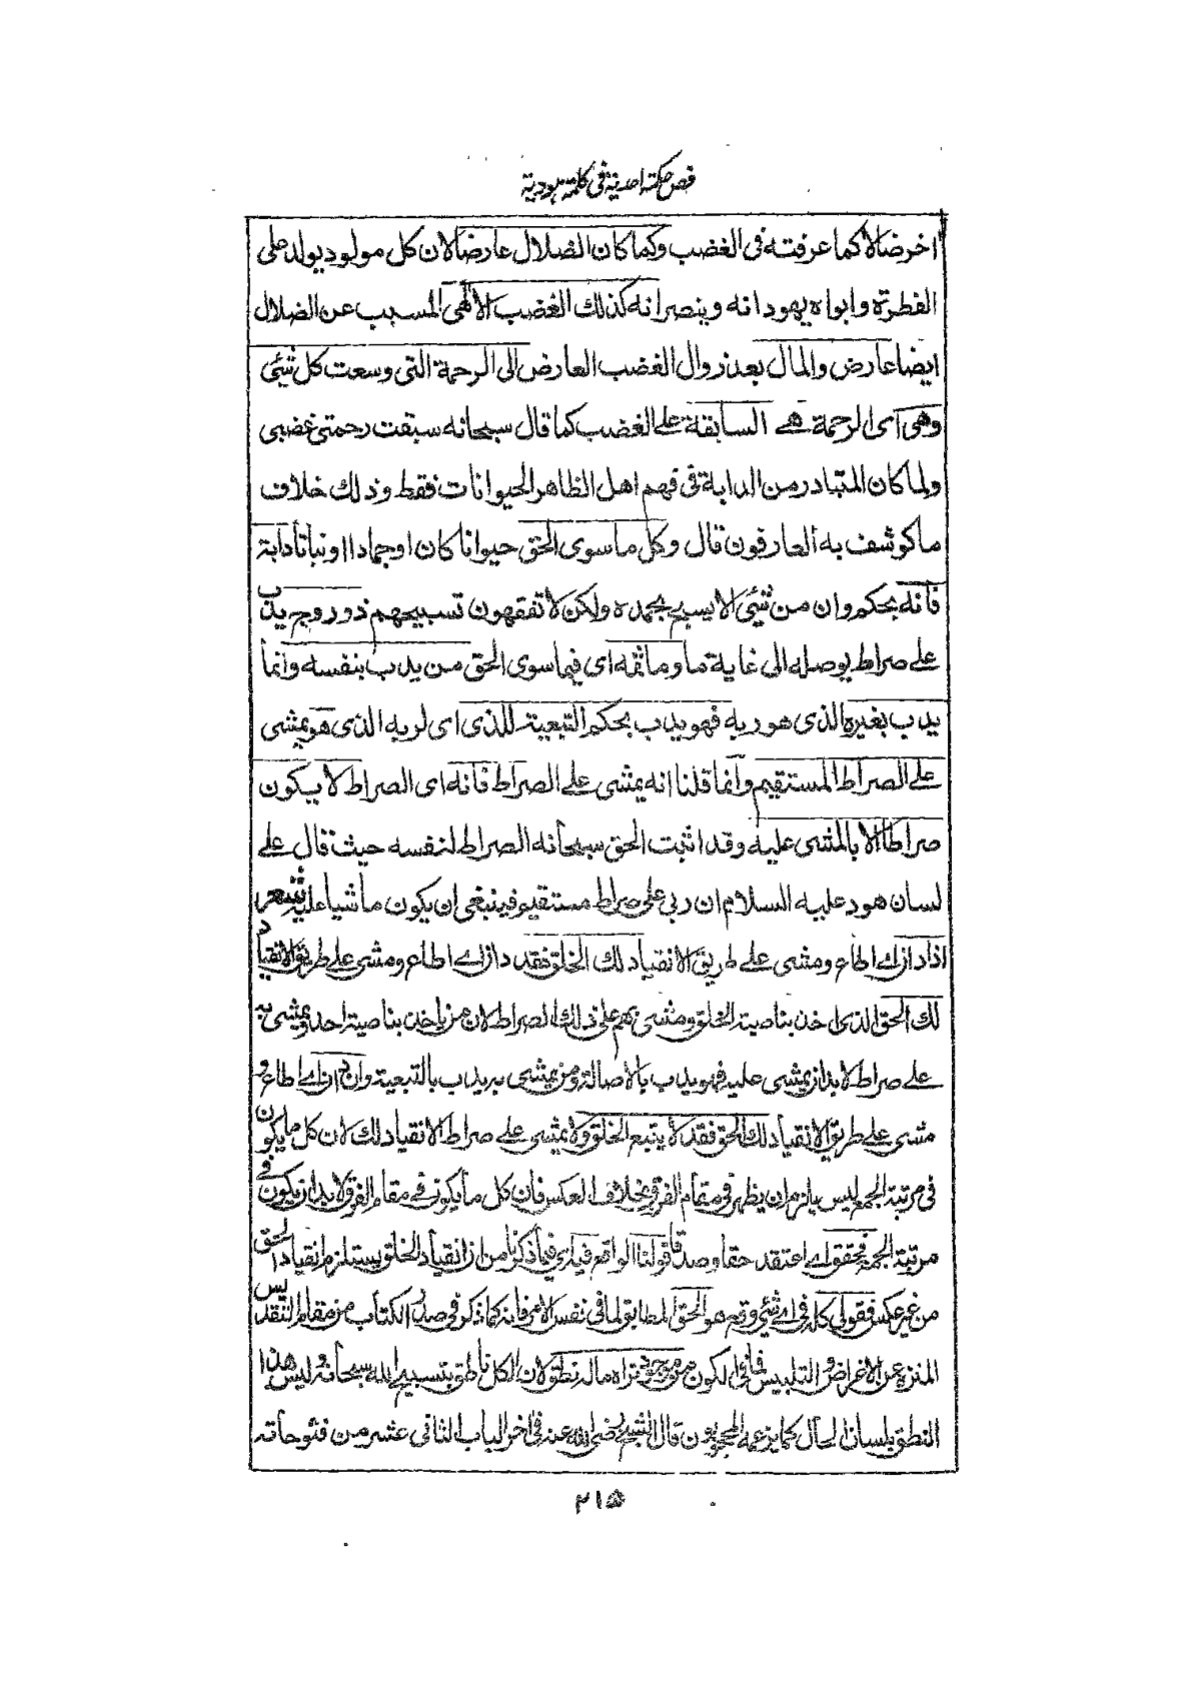 فص حكمة احدية فى كلمة هودية
اخر ضالا كما عرفته فى الغضب وكما كان الضلال عارضا لان كل مولود يولد على
الفطرة وابواه يهودانه وينصرانه كذلك الغضب الالهى المسبب عن الضلال
ايضا عارض والمال بعد زوال الغضب العارض الى الرحمة التى وسعت كل شئى
وهى اى الرحمة هے السابقة علے الغضب كما قال سبحانه سبقت رحمتى غضبى
ولما كان المتبادر من الدابة فى فهم اهل الظاهر الحيوانات فقط وذلك خلاف
ما كوشف به العارفون قال وكل ما سوى الحق حيوانا كان او جمادا او نباتا دابة
فانه بحكم وان من شئى الا يسبح بحمده ولكن لا تفقهون تسبيحهم ذو روح يدب
علے صراط يوصله الى غاية ما وما ثمه اى فيما سوى الحق من يدب بنفسه وانما
يدب بغيره الذى هو ربه فهو يدب بحكم التبعية للذى اى لربه الذى هو يمشى
علے الصراط المستقيم وانما قلنا انه يمشى علے الصراط فانه اى الصراط لا يكون
صراطا الا بالمشى عليه وقد اثبت الحق سبحانه الصراط لنفسه حيث قال علے
لسان هود عليه السلام ان ربى على صراط مستقيم فينبغى ان يكون ماشيا عليه شعر
اذا دان اے اطاع ومشى علے طريق الانقياد لك الخلق فقد دان اے اطاع ومشى على طريق الانقياد
لك الحق الذى اخذ بناصية الخلق ومشى بهم على ذلك الصراط لان من ياخذ بناصية احد ويمشى به
علے صراط لا بد ان يمشى عليه فهو يدب بالاصالة ومن يمشى به يدب بالتبعية وان دان اے اطاع و
مشى على طريق الانقياد لك الحق فقد لا يتبع الخلق ولا يمشى علے صراط الانقياد لك لان كل ما يكون
فى مرتبة الجمع ليس يلزم ان يظهر فى مقام الفرق بخلاف العكس فان كل ما يكون فے مقام الفرق لا بد ان يكون فے
مرتبة الجمع فحقق اے اعتقد حقا وصدقا قولنا الواقع فيه اى فيما ذكرنا من ان انقياد الخلق يستلزم انقياد الحق
من غير عكس فقولى كله فى اے شئى وقع هو الحق المطابق لما فى نفس الامر فانه كما ذكر فى صدر الكتاب من مقام التقديس
المنزه عن الاغراض والتلبيس فما فى الكون من موجود تراه ماله نطق لان الكل ناطق بتسبيح الله سبحانه وليس هذا
النطق بلسان الحال كما يزعمه المحجوبون قال الشيخ رضى الله عنه فى اخر الباب الثانى عشر من فتوحاته
٢١٥